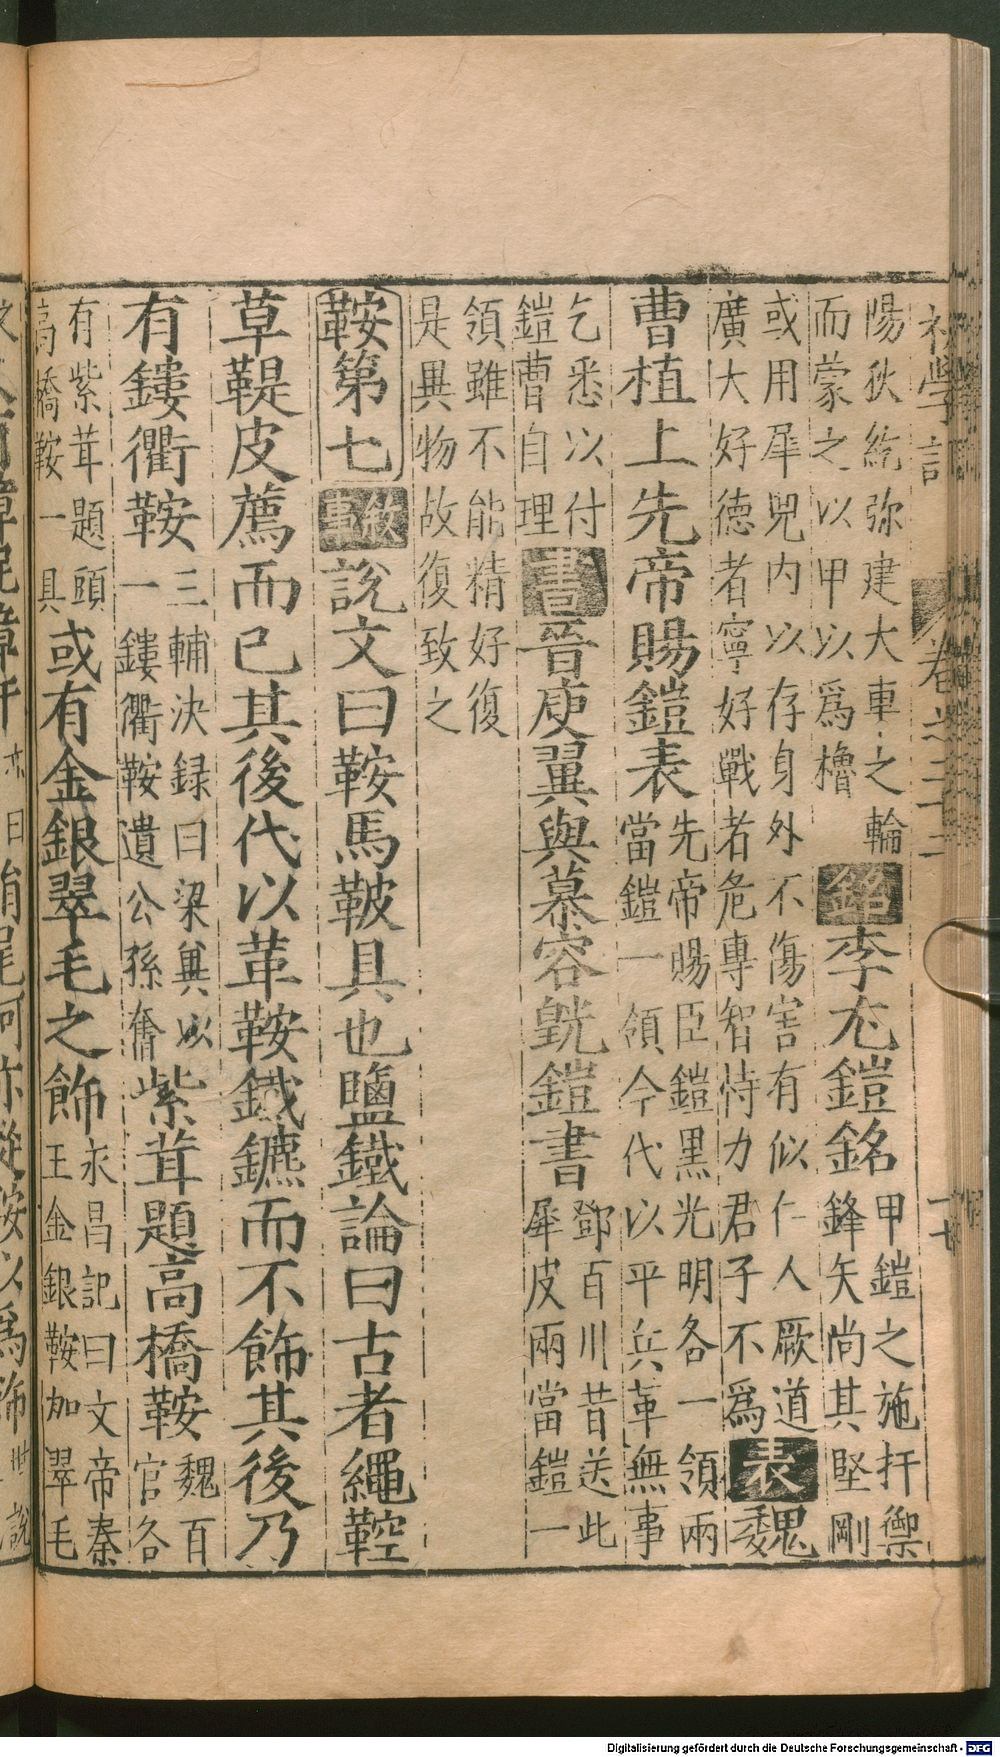 初學記 卷之二十二 十七
陽狄紇弥建大車之輪
而蒙之以甲以爲櫓
銘
李尤鎧銘
甲鎧之施扞禦
鋒矢尚其堅剛
或用犀兕內以存身外不傷害有似仁人厥道
廣大好德者寧好戰者危專智恃力君子不爲
表
魏
曹植上先帝賜鎧表
先帝賜臣鎧黑光明各一領兩
當鎧一領今代以平兵革無事
乞悉以付
鎧曹自理
書
晉庾翼與慕容皝鎧書
鄧百川昔送此
犀皮兩當鎧一
領雖不能精好復
是異物故復致之
鞍第七
敘事
說文曰鞍馬鞁具也鹽鐵論曰古者繩鞚
草鞮皮薦而已其後代以革鞍鐵鑣而不飾其後乃
有鏤衢鞍
三輔決録曰梁兾以
一鏤衢鞍遺公孫奮
紫茸題高橋鞍
魏百
官各
有紫茸題頭
高橋鞍一具
或有金銀翠毛之飾
永昌記曰文帝秦
王金銀鞍加翠毛
以爲飾
世說
Digitalisierung gefördert durch die Deutsche Forschungsgemeinschaft - DFG